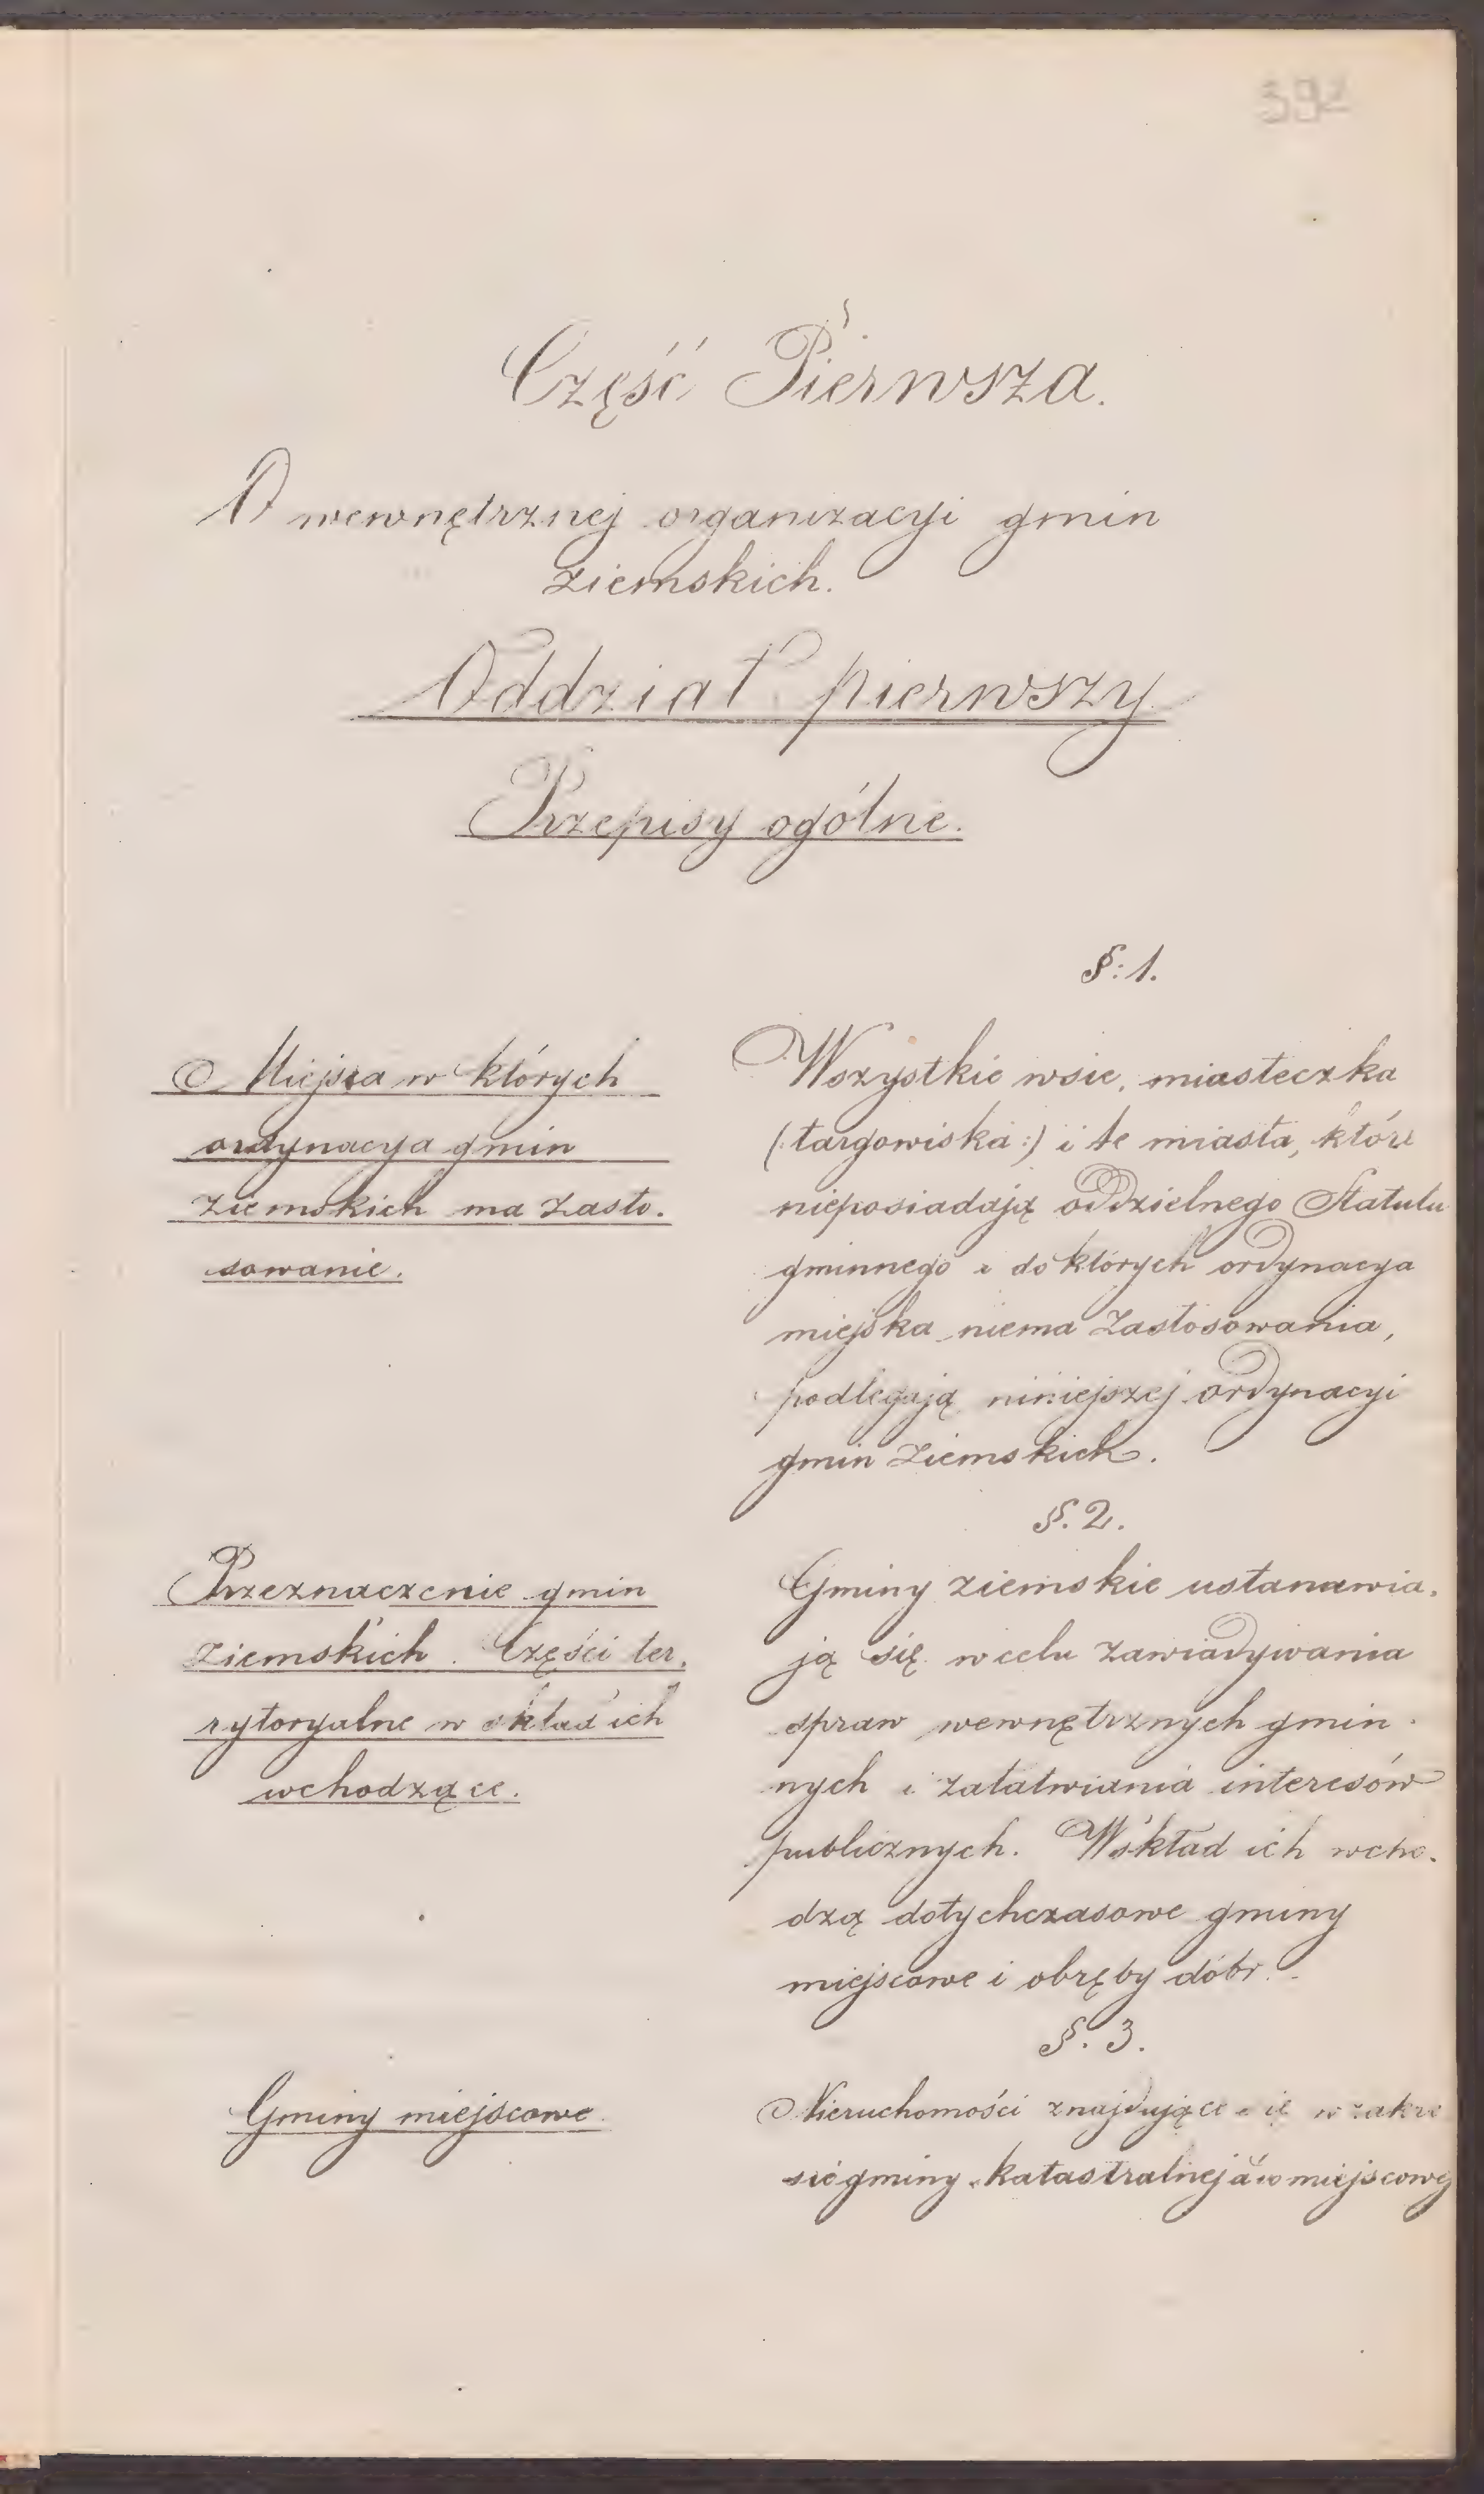 392
Część Pierwsza.
O wewnętrznej organizacyi gmin
ziemskich.
Oddział pierwszy
Przepisy ogólne.
§: 1.
Miejsca w których
ordynacya gmin
ziemskich ma zasto-
sowanie.
Wszystkie wsie, miasteczka
(: targowiska :) i te miasta, które
nieposiadają oddzielnego Statutu
gminnego i do których ordynacya
miejska niema zastosowania,
podlegają niniejszej ordynacyi
gmin ziemskich.
§. 2.
Przeznaczenie gmin
ziemskich. Części ter-
rytoryalne w skład ich
wchodzące.
Gminy ziemskie ustanawia-
ją się w celu zawiadywania
spraw wewnętrznych gmin-
nych i załatwiania interesów
publicznych. W skład ich wcho-
dzą dotychczasowe gminy
miejscowe i obręby dóbr.
§. 3.
Gminy miejscowe
Nieruchomości znajdujące się w zakre
sie gminy katastralnej miejscowej